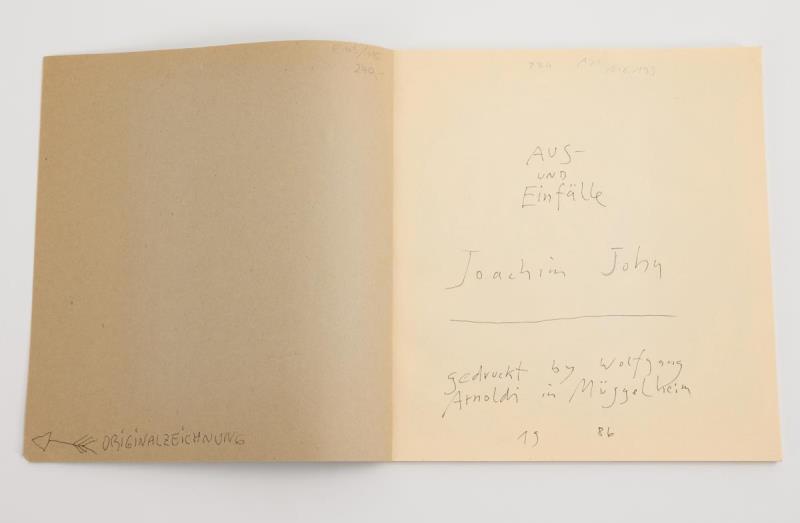 240.-
ORIGINALZEICHNUNG
AUS-
UND
Einfälle
Joachim John
gedruckt by Wolfgang
Arnoldi in Müggelheim
19 86